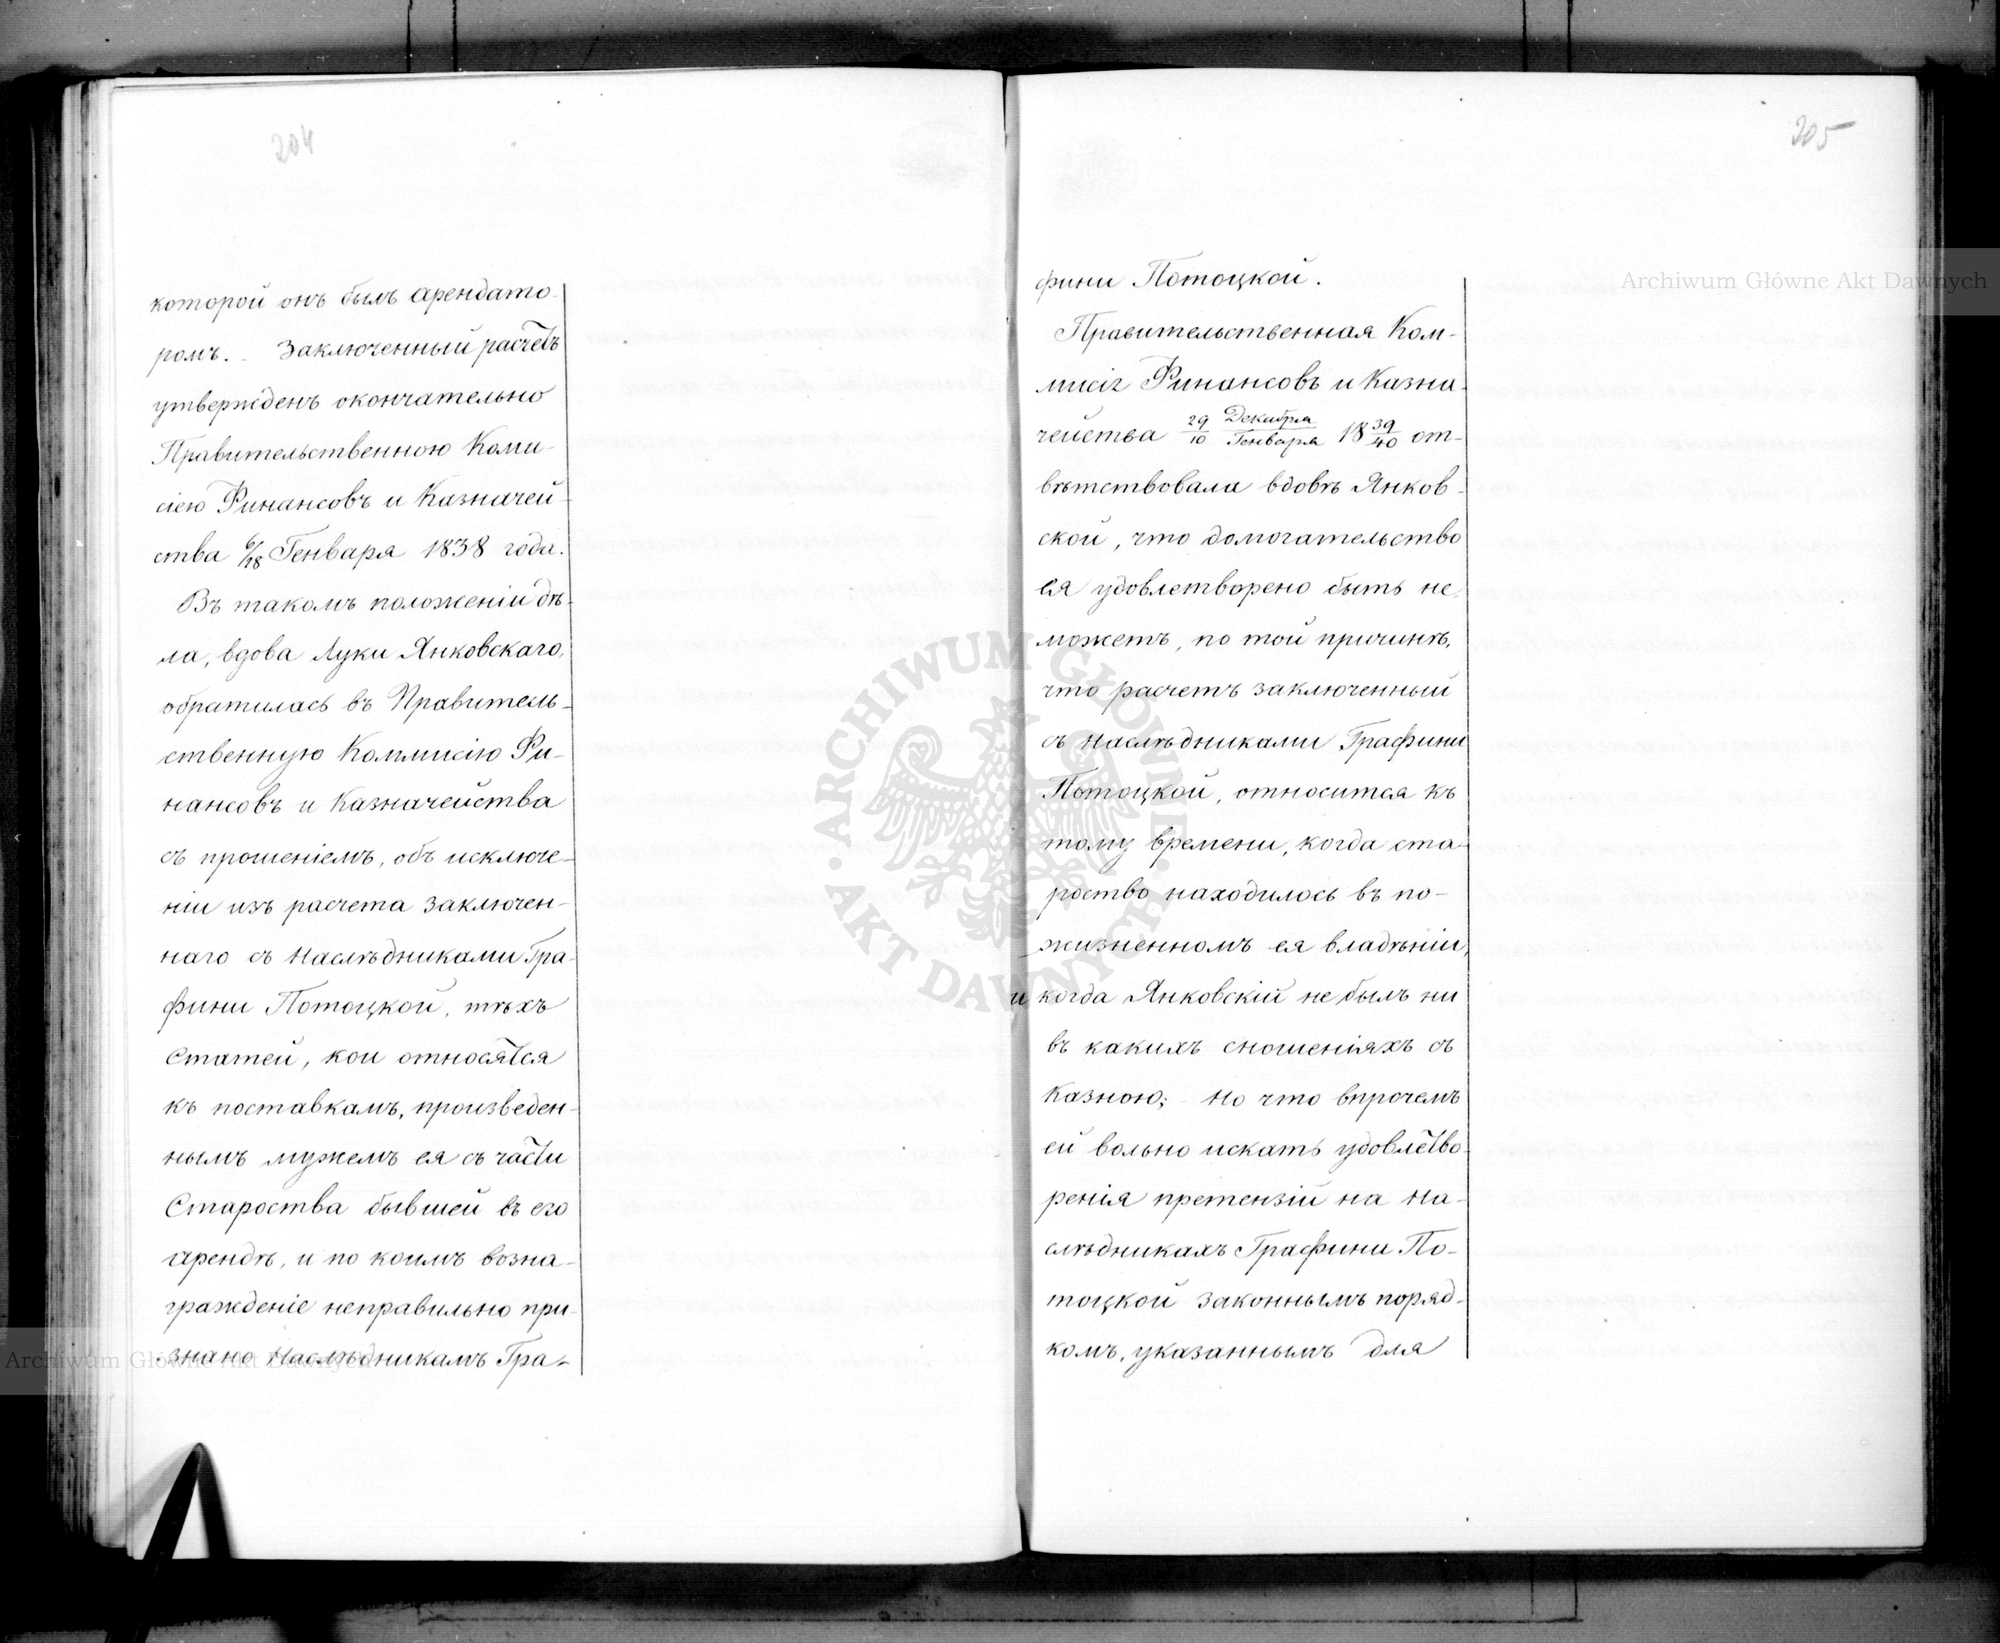 204
которой онъ былъ арендато-
ромъ. - Заключенный расчетъ
утвержденъ окончательно
Правительственною Коми-
сіею Финансовъ и Казначей-
ства 6/18 Генваря 1838 года.
Въ такомъ положеніи дѣ-
ла, вдова Луки Янковскаго,
обратилась въ Правитель-
ственную Коммисію Фи-
нансовъ и Казначейства
съ прошеніемъ, объ исключе-
ніи изъ расчета заключен-
наго съ Наслѣдниками Гра-
фини Потоцкой, тѣхъ
Статей, кои относятся
къ поставкамъ, произведен-
нымъ мужемъ ея съ части
Староства бывшей въ его
арендѣ, и по коимъ возна-
гражденіе неправильно при-
знано Наслѣдникамъ Гра-
205
фини Потоцкой.
Правительственная Ком-
мисія Финансовъ и Казна-
чейства 29/10 Декабря/Генваря 18 39/40 от-
вѣтствовала вдовѣ Янков-
ской, что домогательство
ея удовлетворено быть не-
можетъ, по той причинѣ,
что расчетъ заключенный
съ Наслѣдниками Графини
Потоцкой, относится къ
тому времени, когда ста-
роство находилось въ по-
жизненномъ ея владѣніи,
и когда Янковскій не былъ ни
въ какихъ сношеніяхъ съ
Казною; - Но что впрочемъ
ей вольно искать удовлетво-
ренія претензій на На-
слѣдникахъ Графини По-
тоцкой законнымъ поряд-
комъ, указаннымъ для
Archiwum Główne Akt Dawnych
ARCHIWUM GŁÓWNE AKT DAWNYCH
Archiwum Główne Akt Dawnych